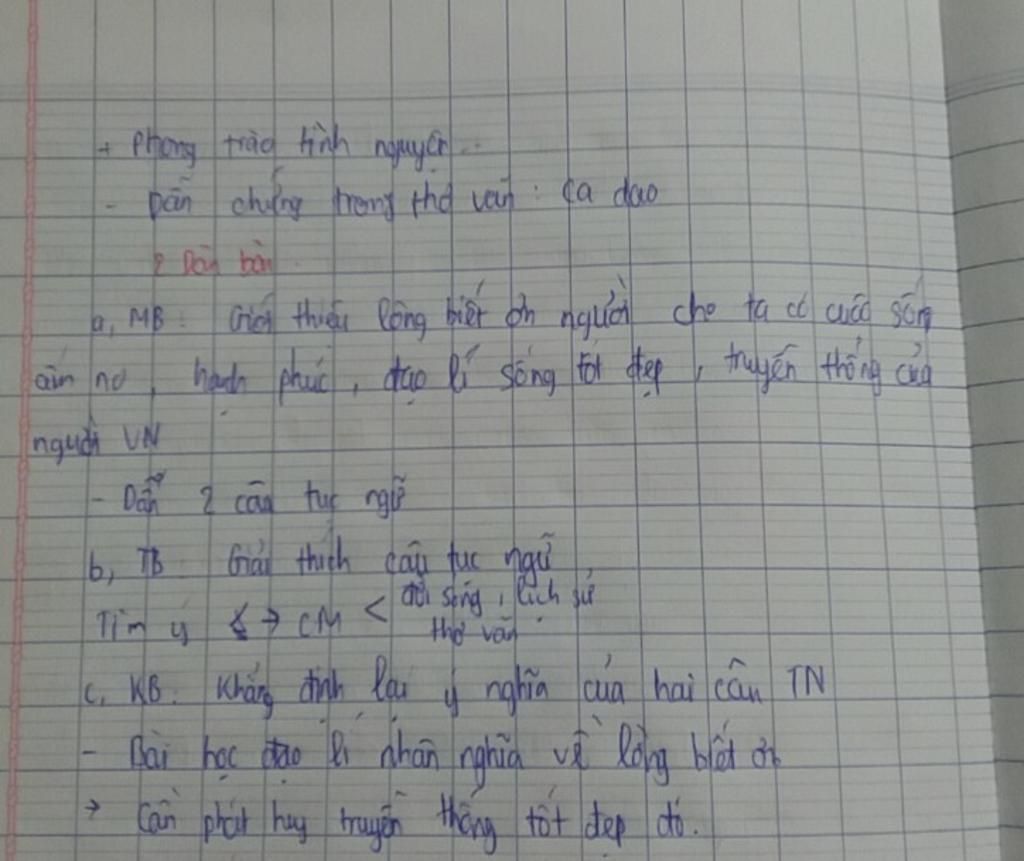 + Phong trào tình nguyện...
- Dẫn chứng trong thơ văn : ca dao
2 Dàn bài
a, MB : Giới thiệu lòng biết ơn người cho ta có cuộc sống
ấm no , hạnh phúc , đạo lí sống tốt đẹp , truyền thống của
người VN
- Dẫn 2 câu tục ngữ
b, TB Giải thích câu tục ngữ
Tìm ý → CM < đời sống , lịch sử
thơ văn
c, KB. Khẳng định lại ý nghĩa của hai câu TN
- Bài học đạo lí nhân nghĩa về lòng biết ơn
→ Cần phát huy truyền thống tốt đẹp đó.